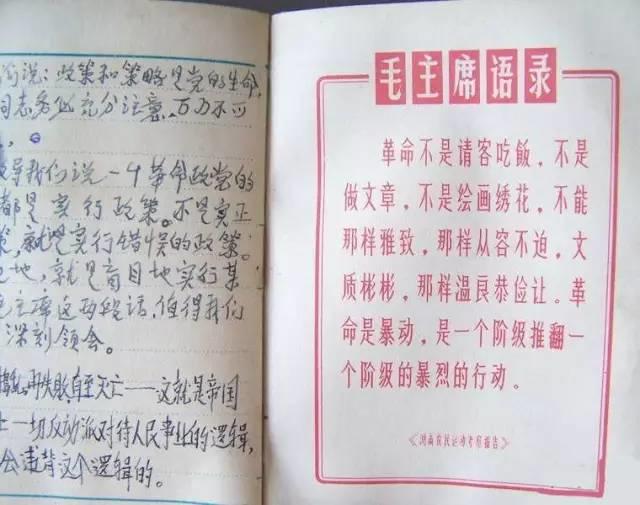 说：政策和策略是党的生命，
同志务必充分注意，万万不可
，
导我们说一个革命政党的
都是实行政策。不是实行正
策，就是实行错误的政策；
地，就是盲目地实行某
主席这两段话，值得我们
深刻领会。
捣乱，再失败，直至灭亡——这就是帝国
一切反动派对待人民事业的逻辑，
会违背这个逻辑的。
毛主席语录
革命不是请客吃飯，不是
做文章，不是绘画绣花，不能
那样雅致，那样从容不迫，文
质彬彬，那样温良恭俭让。革
命是暴动，是一个阶级推翻一
个阶级的暴烈的行动。
《湖南农民运动考察报告》